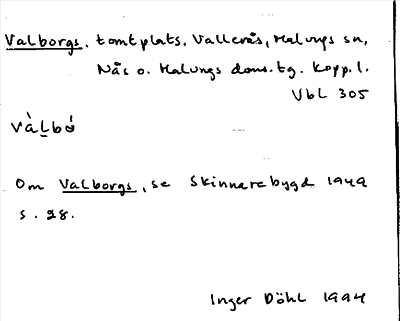 Valborgs, tomtplats, Vallerås, Malungs sn,
Nås o. Malungs doms.tg. Kopp.l.
VbL 305
và̀ḷbó
Om Valborgs, se Skinnarebygd 1949
s. 28.
Inger Döhl 1994